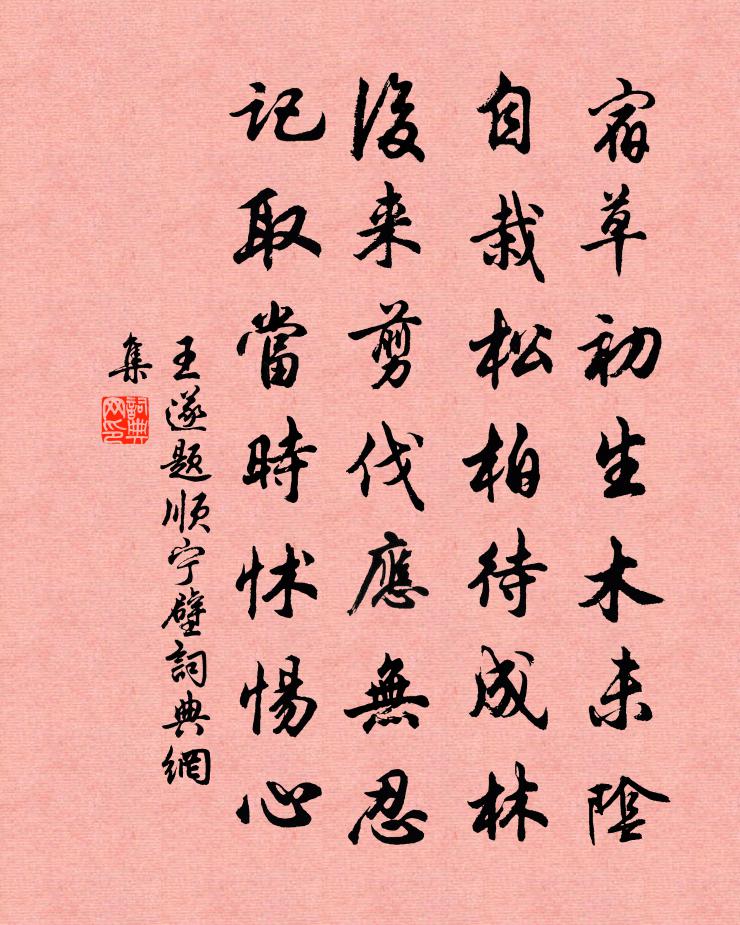 宿草初生木未陰
自栽松柏待成林
後来剪伐應無忍
記取當時怵惕心
王遂題順宁壁詞典網
集
詞典
网印